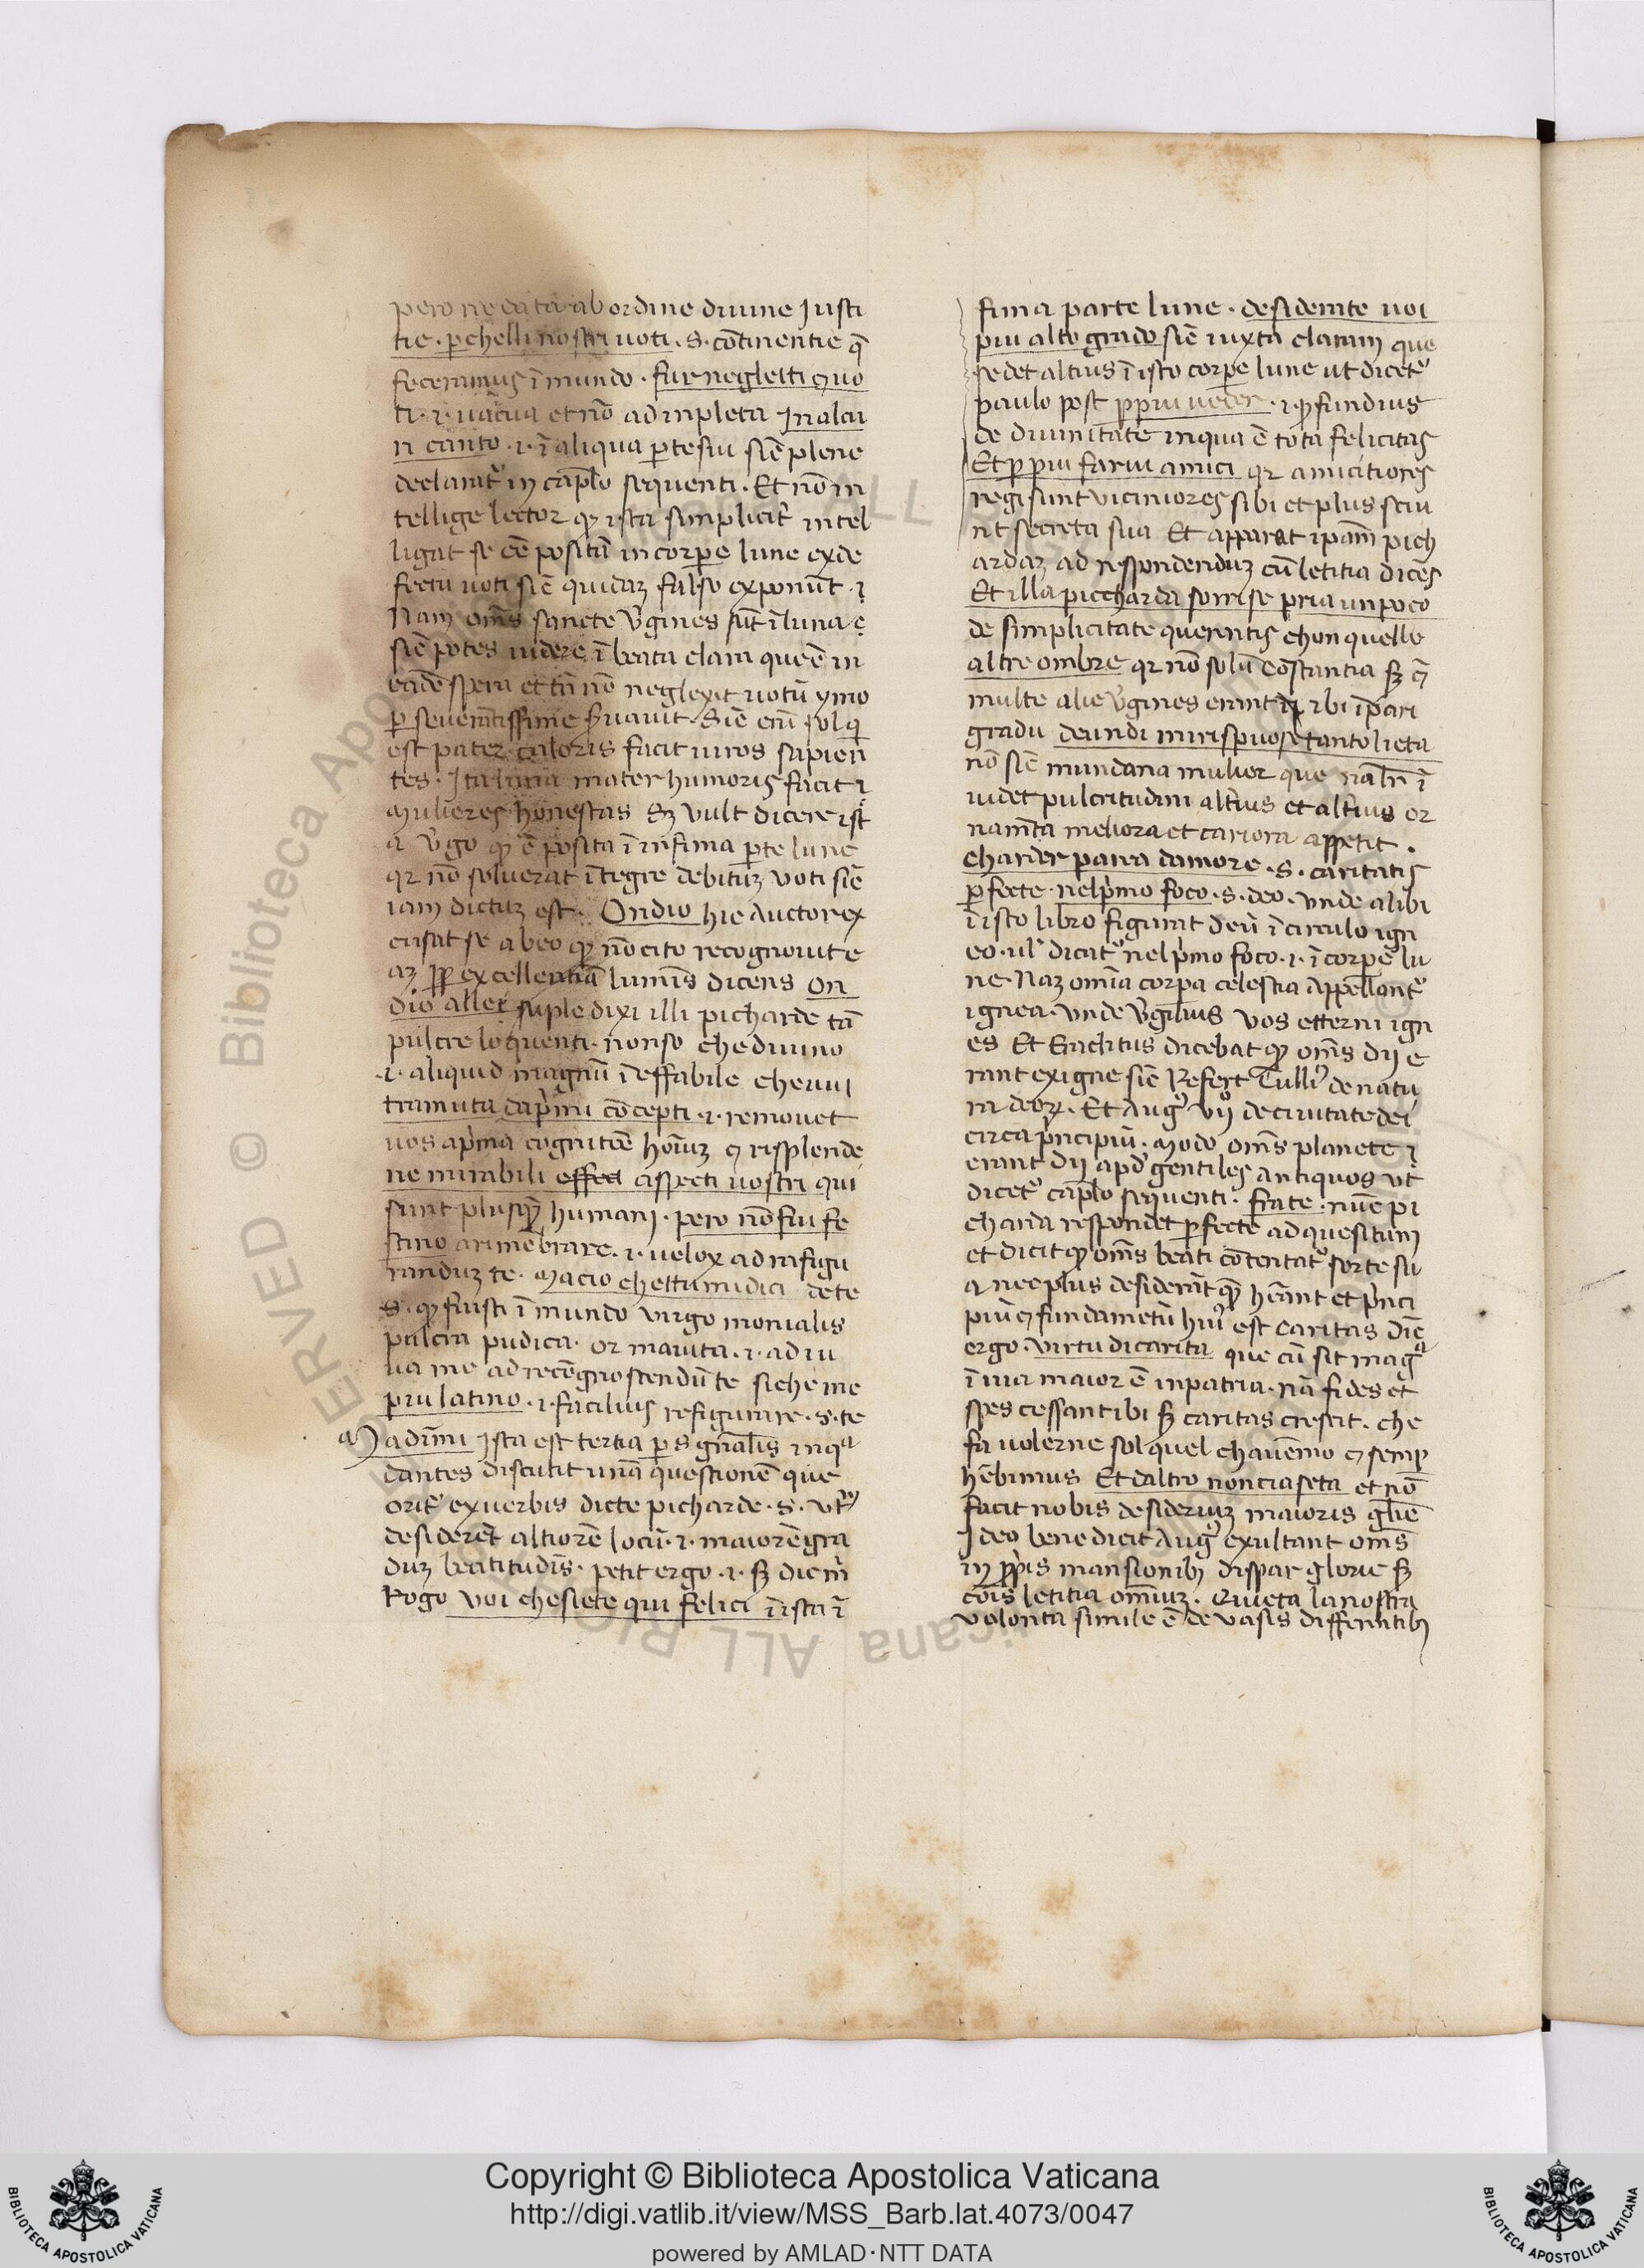 pero ne data ab ordine diuine Justi
tie · p chelli nostri uoti . S . cōtinentie q̄
feceramus ī mundo · fur negletti ꝯ uo
ti · i · uacua et nō adinpleta Jn alcu
n canto · i · ī aliqua pte siu sic̄ plene
declarat᷑ in cap̄lo sequenti · Et nō in
tellige lector qꝫ ista simplicit᷑ intel
ligat se cē positā in corpe lune ex de
fectu uoti sic̄ quidaꝫ falso exponūt · ꝛ
Nam om̄s sancte v̄gines sūt ī luna
sic̄ potes uidere ī beata clara que ē in
eadē spera et tn̄ nō neglexit uotū ymo
p seuerātissime s̄uauit · Sic̄ eni᷑ sol q
est pater caloris facit uiros sapien
tes · Ita luna mater humoris facit ꝛ
mulieres honestas Sꝫ uult dicere ist
a v̄go qꝫ ē posita ī infima pte lune
qꝛ nō soluerat ītegre debituꝫ uoti sic̄
iam dictuꝫ est · Ondio hic Auctor ex
cusat se ab eo qꝫ nō cito recognouit e
aꝫ ꝓp̄ excellentiā lumīs dicens on
dio allei suple dixi illi picharde tā
pulcre loquenti · non so che diuino
· i · aliquid magnū ī effabile che ui
tramuta da p̄mi cōcepti · i · remouet
uos a p̄ma cognitiōe hoīuꝫ ꝯ risplende
ne mirabili effect aspecti uostri qui
sunt plusqꝫ humani · pero nō fiu fe
stino a rimēbrare · i · uelox ad rafigu
randuꝫ te · Ma cio chettu mi dici de te
S · qꝫ fuisti ī mundo virgo monialis
pulcra pudica · or maiuta · i · ad iu
ua me ad recōgnoscendū te siche me
piu latino · i · facilius refigurare · s · te
Ma dimi Ista est tertia ps gn̄alis in qa
dantes discutit unā questionē que
orit᷑ ex uerbis dicte picharde · s · vt᷑
desiderēt altiorē locū · i · maiorē gra
duꝫ beatitudīs · petit ergo · i · sꝫ dic m̄
Rogo voi che siete qui felici ī ista ī
fima parte lune · desiderate uoi
piu alto grado sic̄ iuxta claram que
sedet altius ī isto corpe lune ut dicet᷑
paulo post p piu ueder · i · ꝓfundius
de diuinitate in qua ē tota felicitas
Et p piu farui amici qꝛ amicitiores
regi sunt viciniores sibi et plus sciu
nt secreta sua Et apparat ipam pich
ardaꝫ ad respondenduꝫ cū letitia dicēs
Et illa piccharda sorrise pria un poco
de simplicitate querentis chon quelle
altre ombre qꝛ nō solū Costantia sꝫ ꝯ
multe alie v̄gines erant ibi ī pari
gradu deundi mi rispuose tanto lieta
nō sic̄ mundana mulier que nālr̄ ī
uidet pulcritudini altius et altius or
nam̄ta meliora et cariora appetit ·
charder parea damore · s · caritatis
p fecte · nel p̄mo foco · s · deo · vnde alibi
ī isto libro figurat deū ī circulo ign
eo · ul᷑ dicat᷑ nel p̄mo foco · i · ī corpe lu
ne · Naꝫ omīa corpa celestia Appellant᷑
ignea · vnde v̄gilius vos etterni ign
es Et Eraclitus dicebat qꝫ om̄s dij e
rant ex igne sic̄ Refert Tulli᷑ de natu
ra deoꝝ · Et Aug᷑ vijº de ciuitate dei
circa p̄ncipiū · modo om̄s planete ꝛ
erant dij apd᷑ gentiles antiquos vt᷑
dicet᷑ cap̄lo sequenti · frate · nūc pi
charda respondet pfecte ad quesitum
et dicit qꝫ om̄s beati cōtentat᷑ sorte su
a nec plus desiderāt qꝫ hēant et p̄nci
piū ꝯ fundametū hui᷑ est caritas dic̄
ergo · virtu di carita que cū sit magª
ī uia maior ē in patria · nā fides et
spes cessant ibi sꝫ caritas crescit · che
fa volerne sol quel chauemo ꝯ semp
hēbimus Et daltro non ci aseta et nō
facit nobis desideriuꝫ maioris glīe
Ideo bene dicit Aug᷑ exultant om̄s
in ꝓp̄is mansionibꝫ dispar glorie sꝫ
cōis letitia omīuꝫ · Quieta la nostra
volonta simile ē de vasis differentibꝫ
Copyright © Biblioteca Apostolica Vaticana
http://digi.vatlib.it/view/MSS_Barb.lat.4073/0047
powered by AMLAD·NTT DATA